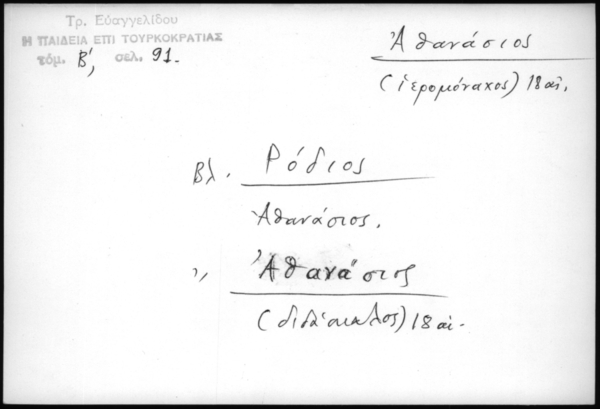 Τρ. Εὐαγγελίδου
Η ΠΑΙΔΕΙΑ ΕΠΙ ΤΟΥΡΚΟΚΡΑΤΙΑΣ
τόμ. Β', σελ. 91.
Ἀθανάσιος
(ἱερομόναχος) 18 αἰ.
Βλ. Ρόδιος
Ἀθανάσιος.
〃 Ἀθανάσιος
(διδάσκαλος) 18 αἰ.